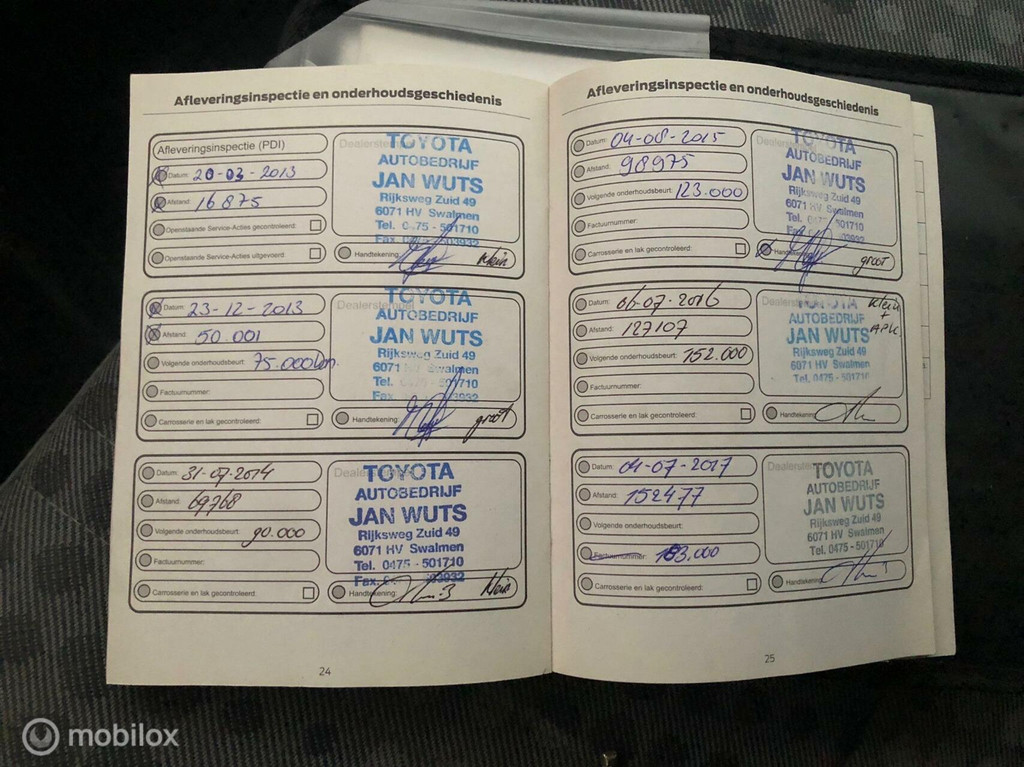 Afleveringsinspectie en onderhoudsgeschiedenis
Afleveringsinspectie (PDI)
Datum: 20-03-2013
Afstand: 16875
Openstaande Service-Acties gecontroleerd:
Openstaande Service-Acties uitgevoerd:
TOYOTA
AUTOBEDRIJF
JAN WUTS
Rijksweg Zuid 49
6071 HV Swalmen
Tel. 0475 - 501710
Handtekening: Klein
Datum: 23-12-2013
Afstand: 50.001
Volgende onderhoudsbeurt: 75.000km.
Factuurnummer:
Carrosserie en lak gecontroleerd:
Dealerstempel
TOYOTA
AUTOBEDRIJF
JAN WUTS
Rijksweg Zuid 49
6071 Swalmen
Tel. 501710
Handtekening: groot
Datum: 31-07-2014
Afstand: 69768
Volgende onderhoudsbeurt: 90.000
Factuurnummer:
Carrosserie en lak gecontroleerd:
TOYOTA
AUTOBEDRIJF
JAN WUTS
Rijksweg Zuid 49
6071 HV Swalmen
Tel. 0475 - 501710
Handtekening: Klein
24
Afleveringsinspectie en onderhoudsgeschiedenis
Datum: 04-08-2015
Afstand: 98975
Volgende onderhoudsbeurt: 123.000
Factuurnummer:
Carrosserie en lak gecontroleerd:
TOYOTA
AUTOBEDRIJF
JAN WUTS
Rijksweg Zuid 49
6071 HV Swalmen
Tel. 501710
groot
Datum: 06-07-2016
Afstand: 127107
Volgende onderhoudsbeurt: 152.000
Factuurnummer:
Carrosserie en lak gecontroleerd:
Klein
+
APK
TOYOTA
AUTOBEDRIJF
JAN WUTS
Rijksweg Zuid 49
6071 HV Swalmen
Tel. 0475 - 501710
Handtekening:
Datum: 04-07-2017
Afstand: 152477
Volgende onderhoudsbeurt:
Factuurnummer: 183.000
Carrosserie en lak gecontroleerd:
TOYOTA
AUTOBEDRIJF
JAN WUTS
Rijksweg Zuid 49
6071 HV Swalmen
Tel. 0475 - 501710
Handtekening:
25
mobilox